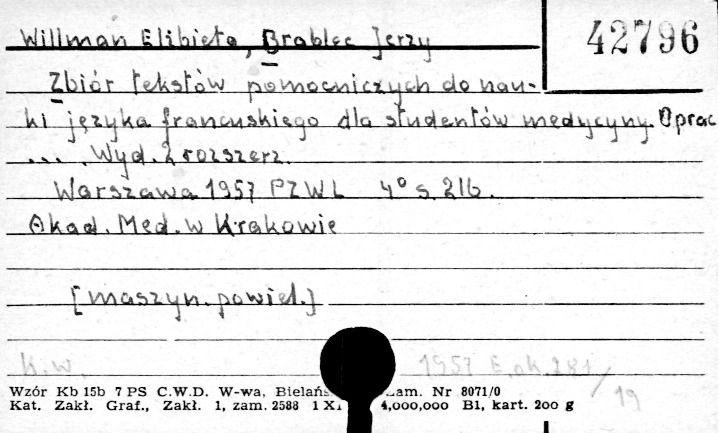 Willman Elibieta, Brablec Jerzy
42796
Zbiór tekstów pomocniczych do nau-
ki języka francuskiego dla studentów medycyny. Oprac
... . Wyd. 2 rozszerz.
Warszawa 1957 PZWL 4° s. 216.
Akad. Med. w Krakowie
[maszyn. powiel.]
K.w. 1957 E. ok. 281/19
Wzór Kb 15b 7 PS C.W.D. W-wa, Bielańs Zam. Nr 8071/0
Kat. Zakł. Graf., Zakł. 1, zam. 2588 1 XI 4,000,000 B1, kart. 200 g